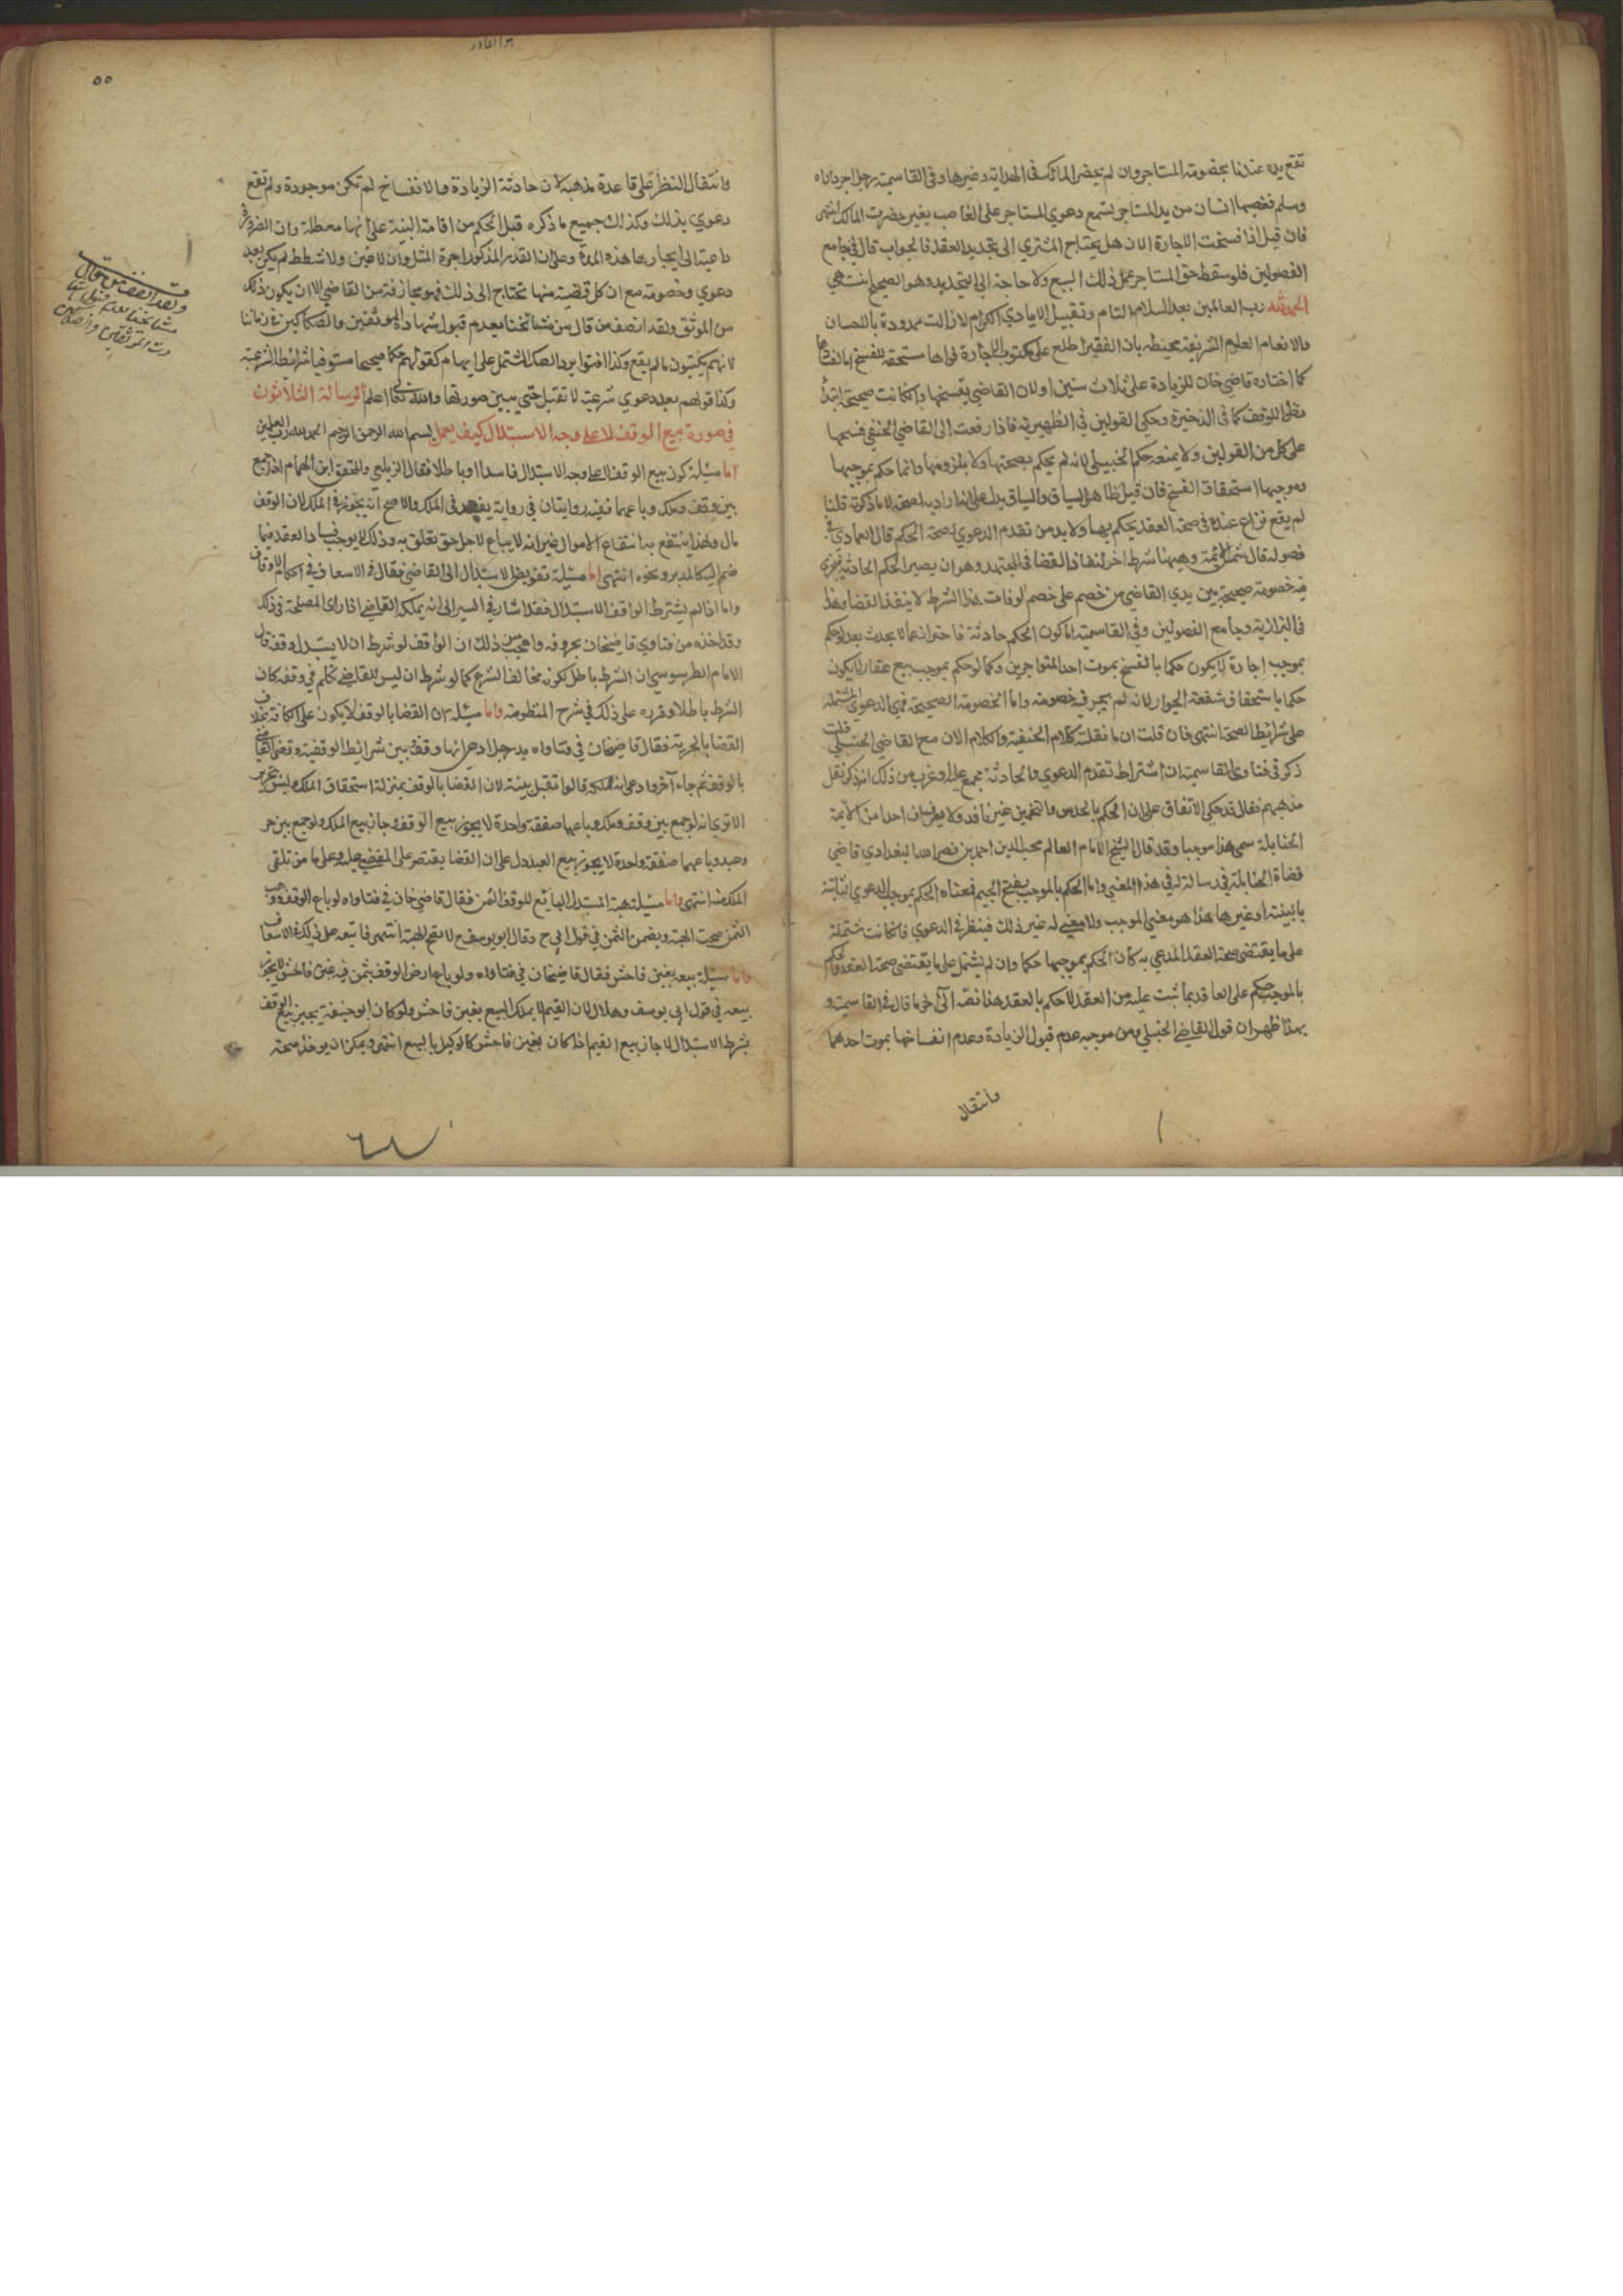 تقع يده عندنا بخصومته المستاجر وان لم يحضر المالك في الهدايه وغيرها وفي القاسمية رجل اجر داراه
وسلم فغصبها انسان من يد المستاجر يسمع دعوي المستاجر على الغاصب بغير حضرت المالك انتهى
فان قيل اذا فسخت الاجارة الان هل يحتاج المشتري الى تجديد العقد فالجواب قال في جامع
الفصولين فلو سقط حق المستاجر عمل ذلك البيع ولا حاجة الى التجديد وهو الصحيح انتهي
الحمد لله رب العالمين بعد السلام التام وتقبيل الايادي الكرام لازالت ممدودة بالاحسان
والانعام العلوم الشريفة محيطه بان الفقير اطلع على مكتوب الاجارة فراها مستحقة للفسخ
كما اختاره قاضي خان للزيادة على ثلاث سنين اولان القاضي يفسخها وان كانت صحيحة ابتدأ
نظرا للوقف كما في الذخيرة وحكي القولين في الظهيرية فاذا رفعت الى القاضي الحنفي فسخها
على كل من القولين ولا يمنعه حكم الحنبيلي لانه لم يحكم بصحتها ولا بلزومها وانما حكم بموجبها
وموجبها استحقاق الفسخ فان قيل ظاهر السياق والسياق يدل على انه اراد به الصحة لاما ذكرته قلنا
لم يقع نزاع عنده في صحة العقد يحكم بها ولا بد من تقدم الدعوي لصحة الحكم قال العمادي في
فصوله قال شمس الائمة وههنا شرط اخر لنفاذ القضا في المجتهد وهو ان يصير الحكم الحادثة تجري
فيه خصومة صحيحة بين يدي القاضي من خصم على خصم لو فات هذا الشرط لا ينفذ القضا وهذا
في البزازية وجامع الفصولين وفي القاسمية اما كون الحكم حادثة فاحتراز عما لا يحدث بعد لو حكم
بموجب اجارة لا يكون حكما بالفسخ بموت احد المتواجرين وكما لو حكم بموجب بيع عقار لا يكون
حكما باستحقاق شفعة الجوار لانه لم يجر فيه خصومة واما الخصومة الصحيحة فهي الدعوي المشتملة
على شرائط الصحة انتهى فان قلت ان ما نقلته كلام الحنفية والكلام الان مع القاضي الحنبلي قلت
ذكر في فتاوى القاسمية ان اشتراط تقدم الدعوي والحادثة مجمع عليه واغرب من ذلك انه ذكر نقل
مذهبهم فقال قد حكي الاتفاق على ان الحكم بالحدس والتخمين غير نافد ولا يعرف ان احدا من الائمة
الحنابلة سمى هذا موجبا وقد قال الشيخ الامام العالم محب الدين احمد بن نصر الله البغدادي قاضي
قضاة الحنابلة في رسالة له في هذا المعني واما الحكم بالموجب بفتح الجيم فمعناه الحكم بموجب الدعوي الثابتة
بالبينة او غيرها هذا هو معني الموجب ولا معني له غير ذلك فينظر في الدعوي فان كانت مشتملة
على ما يقتضي صحة العقد المدعي به كان الحكم بموجبها حكما وان لم يشتمل على ما يقتضي صحة العقد فالحكم
بالموجب حكم على العاقد بما ثبت عليه من العقد لا حكم بالعقد هذا نصه الى آخر ما قال في القاسمية و
بهذا ظهر ان قول القاضي الحنبلي ومن موجبه عدم قبول الزيادة وعدم انفساخها بموت احدهما
وانتقال
هو القادر
٥٥
وانتقال النظر على قاعدة مذهبه لان حادثة الزيادة والانفساخ لم تكن موجودة ولم تقع
دعوي بذلك وكذلك جميع ما ذكره قبل الحكم من اقامة البنية على انها معطلة وان الضرورة
داعية الى ايجارها هذه المدة وعلى ان القدر المذكور اجرة المثل وان لا غبن ولا شطط لم يكن بعد
دعوي وخصومة مع ان كل قضية منها تحتاج الى ذلك فهو مجازفة من القاضي الا ان يكون ذلك
من الموثق ولقد انصف من قال من مشائخنا بعدم قبول شهادة الموثقين والصكاكين في زماننا
لانهم يكتبون ما لم يقع وكذا افتوا برد الصك المشتمل على ايهام كقولهم حكما صحيحا مستوفيا شرائط الشرعية
وكذا قولهم بعد دعوي شرعية لا تقبل حتي يبين صورتها والله تعالى اعلم الرسالة الثلاثون
في صورة بيع الوقف لا على وجه الاستبدال كيف يعمل بسم الله الرحمن الرحيم الحمد لله رب العلمين
اما مسئلة كون بيع الوقف لا على وجه الاستبدال فاسدا او باطلا فقال الزيلعي والمحقق ابن الهمام اذا جمع
بين وقف وملك وباعهما ففيه روايتان في رواية يفسد في الملك والاصح انه يجوز في الملك لان الوقف
مال ولهذا ينتفع به انتفاع الاموال غير انه لا يباع لاجل حق تعلق به وذلك لا يوجب فساد العقد فيما
ضم اليه كالمدبر ونحوه انتهى اما مسئلة تفويض الاستبدال الى القاضي فقال في الاسعاف في احكام الاوقاف
واما اذا لم يشترط الواقف الاستبدال فقد اشار في السير الى انه يملكه القاضي اذا راى المصلحة في ذلك
وقد اخذه من فتاوي قاضيخان بحروفه واعجب من ذلك ان الواقف لو شرط ان لا يستبدل وقفه قال
الامام الطرسوسي ان الشرط باطل لكونه مخالفا لشرع كما لو شرط ان ليس للقاضي كلام في وقفه كان
الشرط باطلا وقرره على ذلك في شرح المنظومة واما مسئلة ان القضا بالوقف لا يكون على الكافة بخلاف
القضا بالحرية فقال قاضيخان في فتاواه يد رجل ادعى انها وقف بين شرائط الوقفية وقضى القاضي
بالوقف ثم جاء آخر وادعى انه ملكه قالوا تقبل بينته لان القضا بالوقف بمنزلة استحقاق الملك وليس بتحرير
الاتري انه لو جمع بين وقف وملك وباعها صفقة واحدة لا يجوز بيع الوقف وجاز بيع الملك ولو جمع بين حر
وعبد وباعهما صفقة واحدة لا يجوز بيع العبد دل على ان القضا يقتصر على المقضي عليه وعلى ما من تلقى
الملك منه انتهى واما مسئلة هبة المستبدل البائع للوقف الثمن فقال قاضي خان في فتاواه لو باع الوقف ووهب
الثمن صحت الهبة ويضمن الثمن في قول ابي ح وقال ابو يوسف ح لا تصح الهبة انتهى فاتبعه على ذلك في الاسعاف
واما مسئلة بيعه بغبن فاحش فقال قاضيخان في فتاواه ولو باع ارض الوقف بثمن فيه غبن فاحش لا يجوز
بيعه في قول ابي يوسف وهلال لان القيم لا يملك البيع بغبن فاحش ولو كان ابو حنيفة يجيز بيع الوقف
بشرط الاستبدال لاجاز بيع القيم اذا كان بغبن فاحش كالوكيل بالبيع انتهى ويمكن ان يوخذ صحة
ولقد انصف من قال
مشائخنا بعدم قبول شها
دت الموثقين والصكاكين